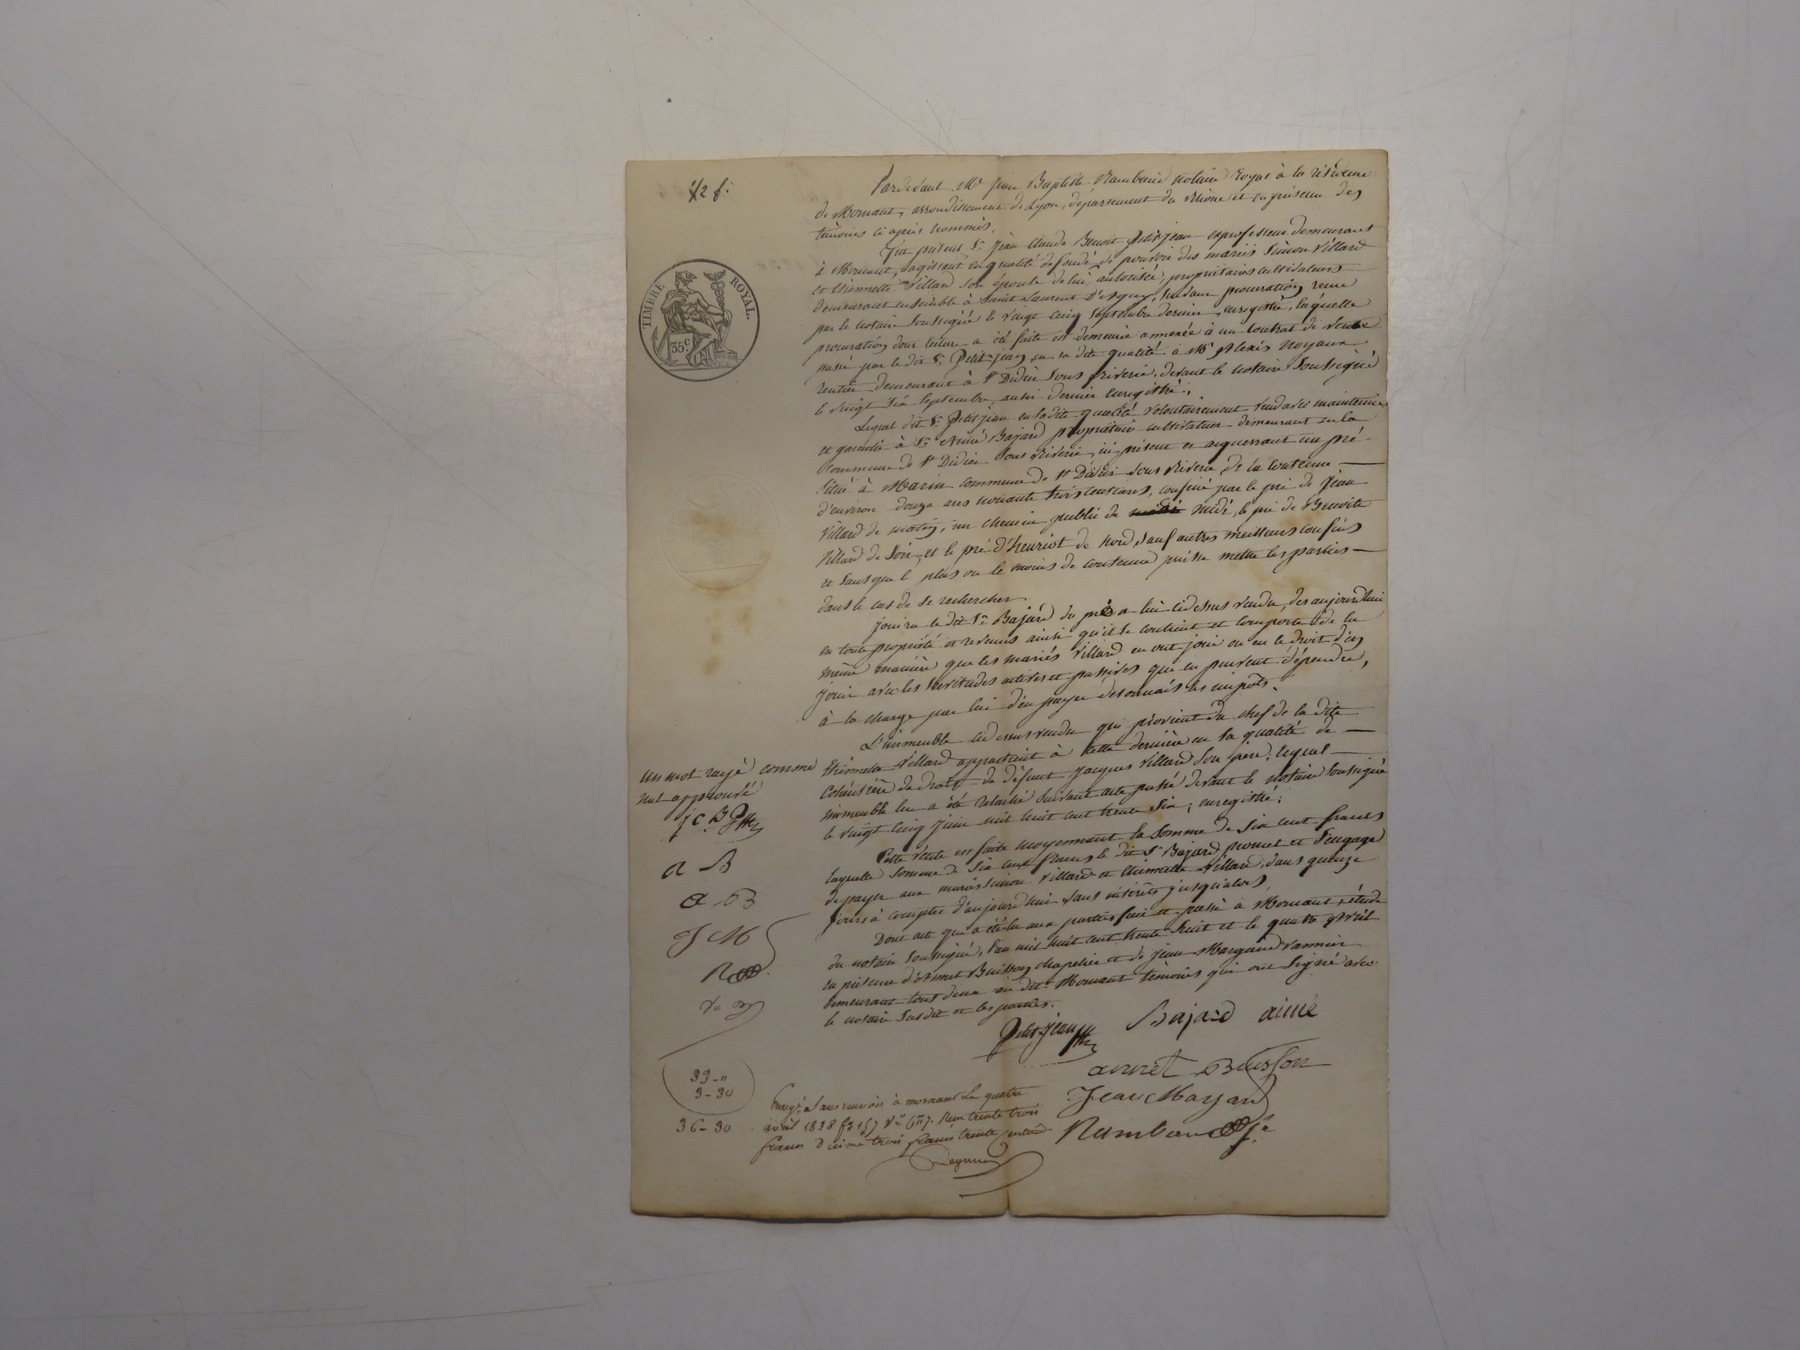 1/2 f.
TIMBRE ROYAL.
35 c
Pardevant Me Jean Baptiste Rambaud notaire Royal à la résidence
de Mornant, arrondissement de Lyon, département du Rhône et en présence des
témoins ci après nommés.
Fut présent Sr Jean Claude Benoit Petitjean exprofesseur demeurant
à Mornant, agissant en qualité de fondé de pouvoir des mariés Simon Villard
et Thiennette Villard son épouse de lui autorisée, propriétaires cultivateurs
demeurant ensemble à Saint Laurent D'agny, suivant procuration reçue
par le notaire soussigné le vingt cinq septembre dernier, enregistré, laquelle
procuration dont lecture a été faite est demeurée annexée à un contrat de vente
passé par le dit Sr Petit-jean, en sa dite qualité à Mr Alexis
rentier demeurant à St Didier sous Riverie, devant le notaire soussigné
le vingt six septembre aussi dernier enregistré;
Lequel dit Sr Petitjean en la dite qualité volontairement vend avec maintenue
et garantie à Sr Aimé Bajard propriétaire cultivateur demeurant en la
commune de St Didier sous Riverie, ici présent et acquerrant un pré
situé à Marin commune de St Didier sous Riverie de la contenue
d'environ douze ares nonante trois centiares, confiné par le pré de Jean
Villard de matin, un chemin public de midi, le pré de Benoite
Villard de soir, et le pré d'heuriot de nord, sauf autres meilleurs confins
et sans que le plus ou le moins de contenue puisse mettre les parties
dans le cas de se rechercher.
Jouira le dit Sr Bajard du pré a lui cidessus vendu, des aujourd'hui
en toute propriété et revenus ainsi qu'il se contient et comporte de la
même manière que les mariés Villard en ont joui ou eu le droit d'en
jouir avec les servitudes actives et passives qui en peuvent dépendre,
à la charge par lui d'en payer désormais les impots.
L'immeuble cidessus vendu qui provient du chef de la dite
Thiennette Villard appartient à cette dernière en sa qualité de
cohéritière de droit de défunt Jacques Villard son père, lequel
immeuble lui a été relaché suivant acte passé devant le notaire soussigné
le vingt cinq Juin mil huit cent trente six, enregistré;
Cette vente est faite moyennant la somme de six cent francs
laquelle somme de six cent francs le dit Sr Bajard promet et s'engage
de payer aux mariés Simon Villard et Thiennette Villard, dans quinze
jours à compter d'aujourd'hui sans intérêts jusqu'alors.
Dont acte qui a été lu aux parties fait et passé à Mornant, étude
du notaire soussigné, l'an mil huit cent trente huit et le quatre Avril
en présence d'Annet Buisson chapelier et de Jean Mazard vannier
demeurant tous deux au dit Mornant témoins qui ont signé avec
le notaire susdit et les parties.
un mot rayé comme
nul approuvé
J C B Pttj
a B
a B
J M
R
Petit-Jean
Bajard aimé
annet Buisson
Jean Mazard
Rambaud
33 - "
3 - 30
36 - 30
Enregé à Mornant Le quatre
avril 1838 Reçu trente trois
francs Dixime trois francs trente centimes